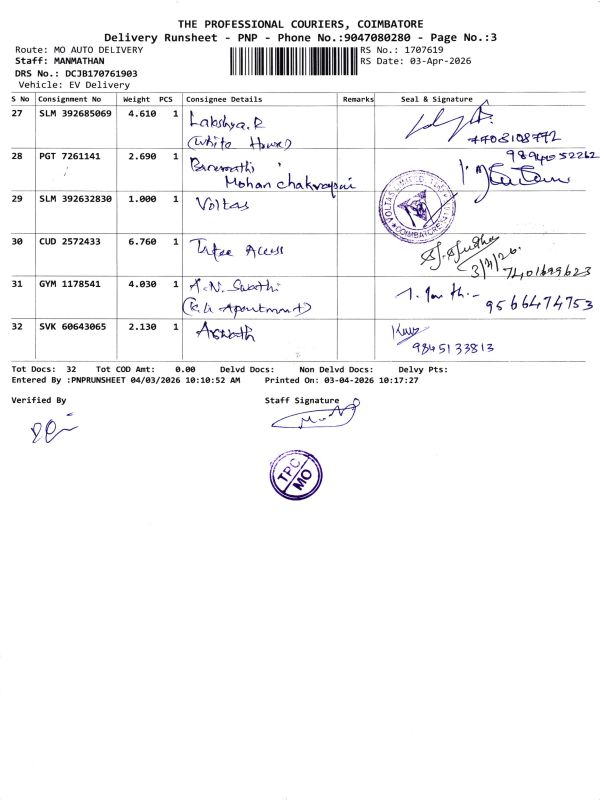 THE PROFESSIONAL COURIERS, COIMBATORE
Delivery Runsheet - PNP - Phone No.:9047080280 - Page No.:3
Route: MO AUTO DELIVERY
RS No.: 1707619
Staff: MANMATHAN
RS Date: 03-Apr-2026
DRS No.: DCJB170761903
Vehicle: EV Delivery
S No Consignment No Weight PCS Consignee Details Remarks Seal & Signature
27 SLM 392685069 4.610 1 Lakshya.R
(White House)
7708108772
28 PGT 7261141 2.690 1
Mohan chakrapani
9894052262
29 SLM 392632830 1.000 1 Voltas
VOLTAS LIMITED
COIMBATORE
30 CUD 2572433 6.760 1 Access
3/4/26.
7401699623
31 GYM 1178541 4.030 1 A.N. Swathi
Apartment)
9566474753
32 SVK 60643065 2.130 1 Aswath
9845133813
Tot Docs: 32 Tot COD Amt: 0.00 Delvd Docs: Non Delvd Docs: Delvy Pts:
Entered By :PNPRUNSHEET 04/03/2026 10:10:52 AM Printed On: 03-04-2026 10:17:27
Verified By
Staff Signature
TPC
MO